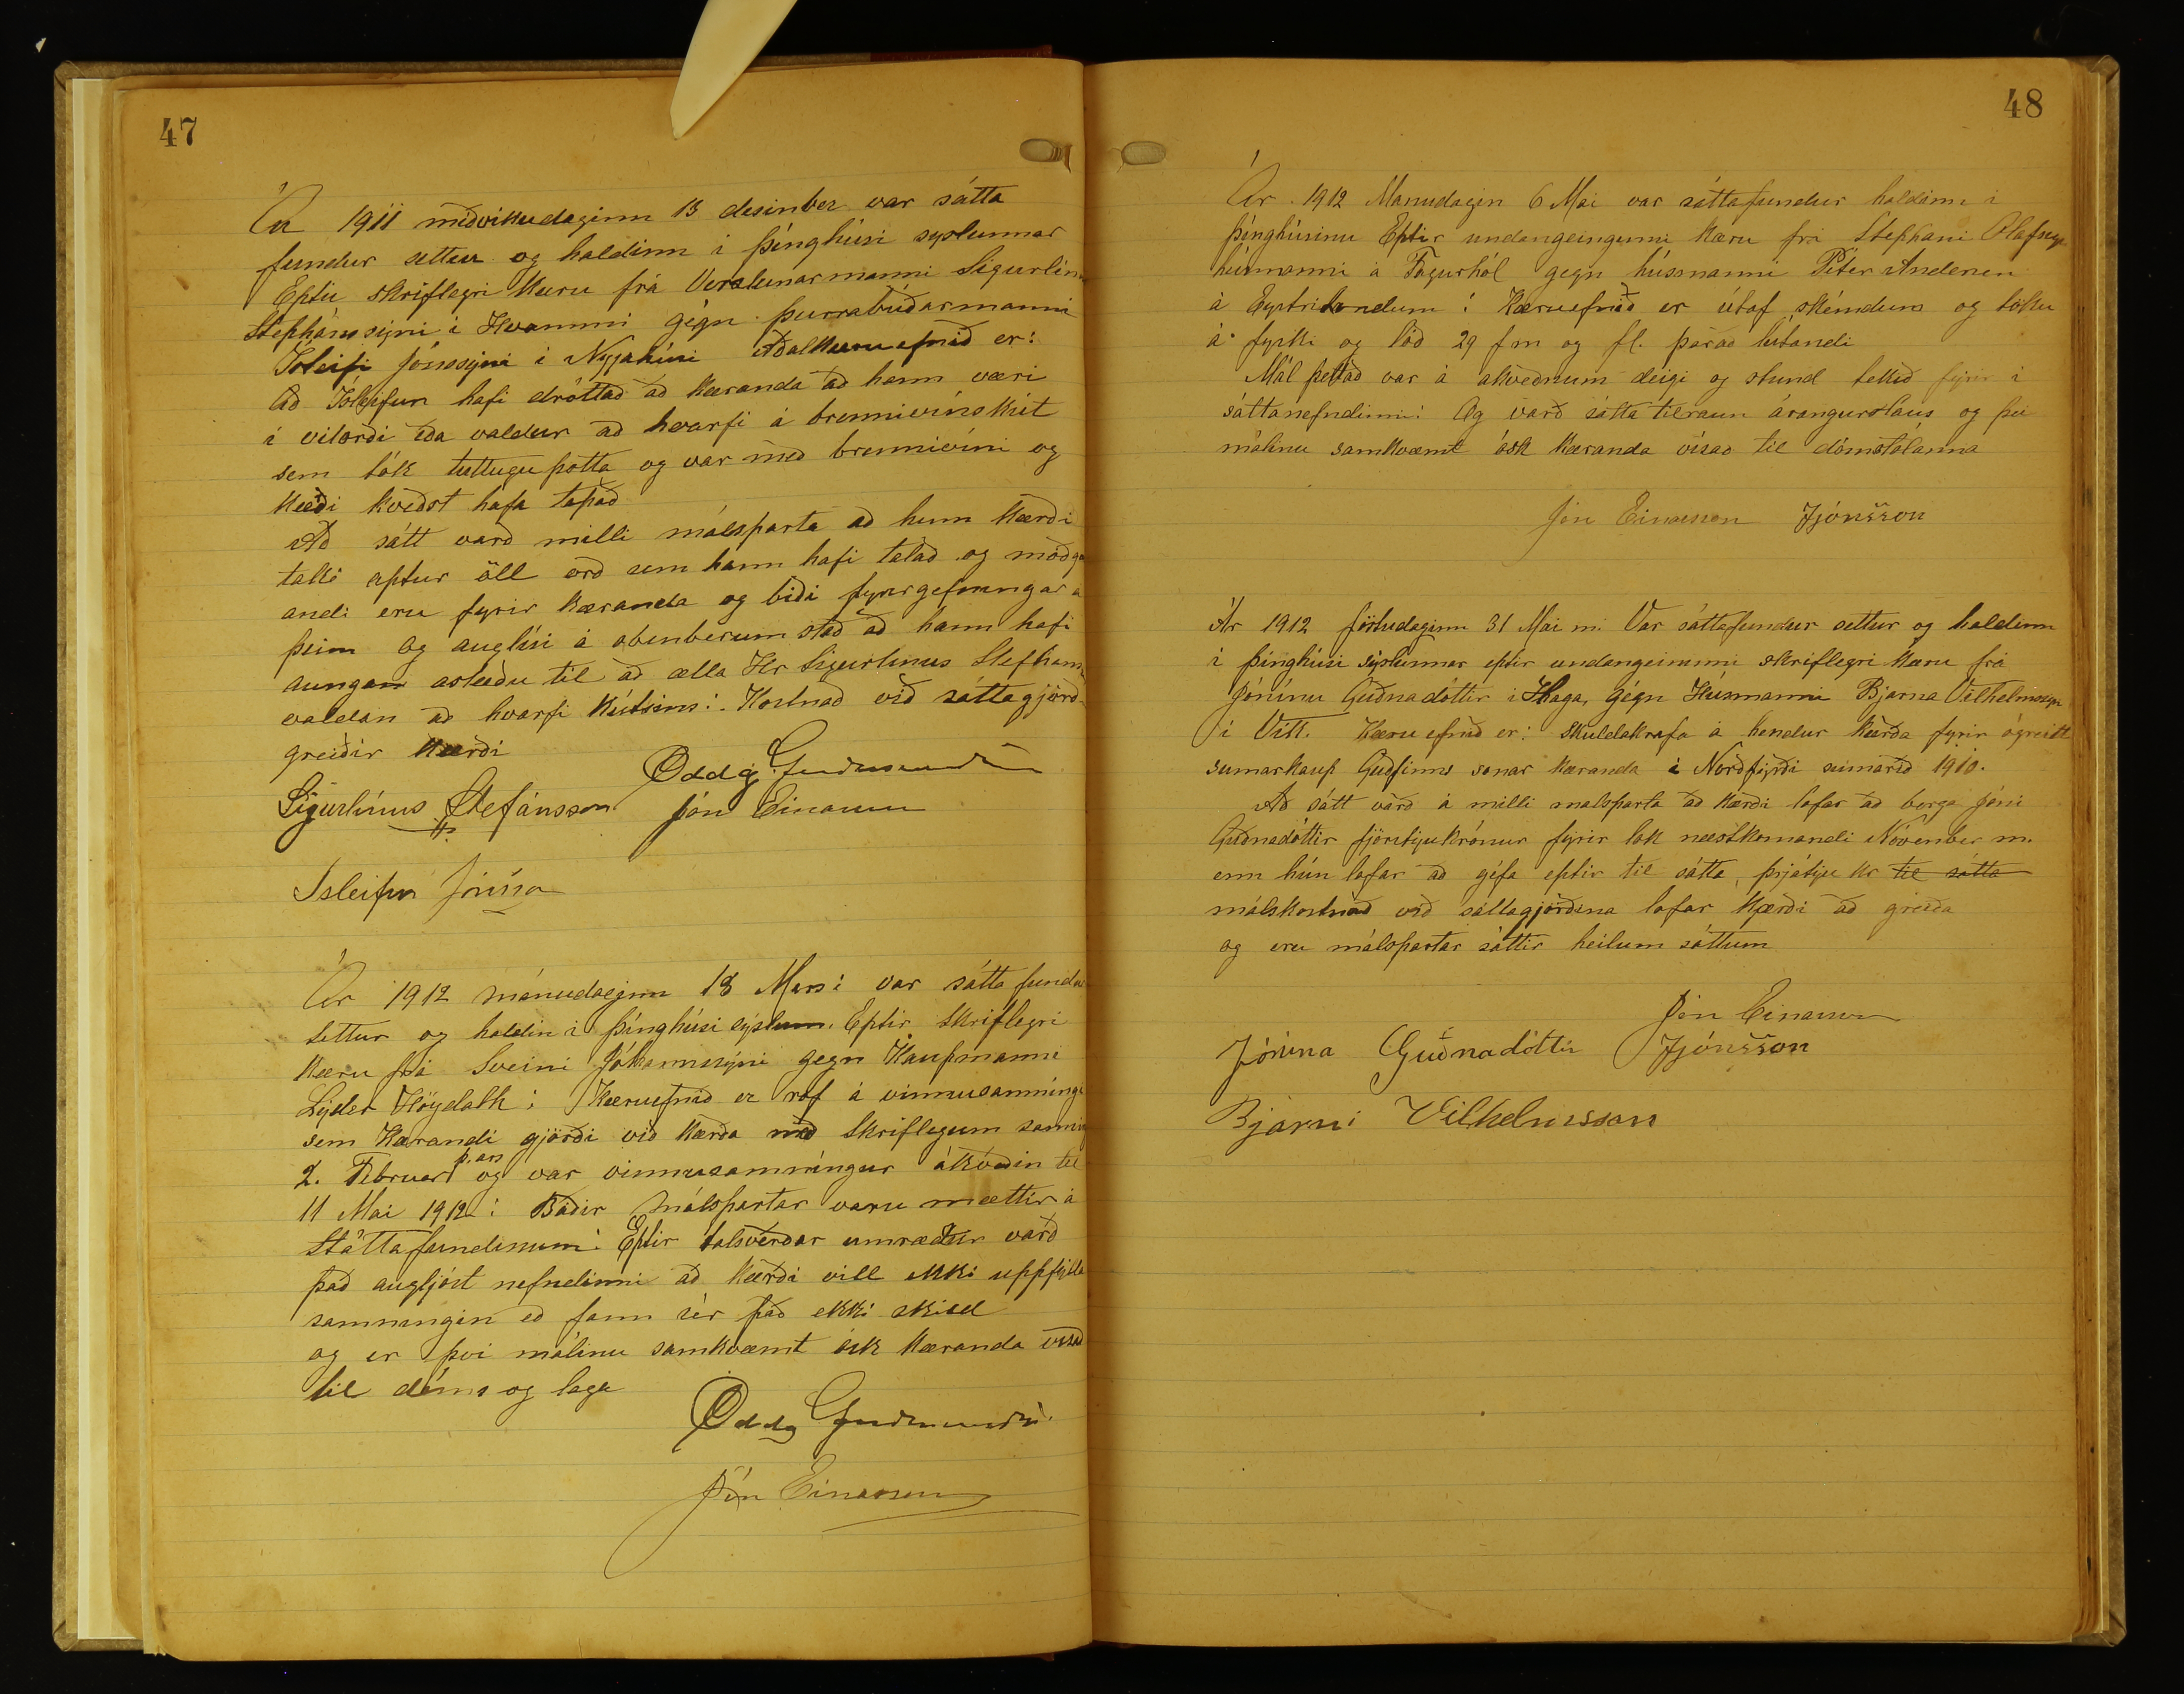 47
Ár 1911 miðvikudaginn 13 desinber var sátta
fundur settur og haldinn i þinghúsi syslunnar
Eptir skriflegri Kæru frá Verslunarmanni Sigurlín
Stephánssýni i Hvammi gegn þurrabúðarmanni
Ísleifi Jónssýni i Nyjahúsi Aðalkæruefnið er:
Að Ísleifur hafi dróttað að Kæranda að hann væri
i vitorði eða valdur að hvarfi á brennivínskút
sem tók tuttugu potta og var með brennivíni og
Kærði kveðst hafa tapað
Að sátt varð milli málsparta að hinn Kærði
taki aptur öll orð sem hann hafi talað og móðg
andi eru fyrir Kæranda og biði fyrirgefningar á
þeim og auglísi á obenberum stað að hann hafi
aungan astæðu til að ætla Hr Sigurlinus Stefhans
valdan að hvarfi Kútsins: Kostnað við sáttagjörð
greiðir Kærði
Oddg Guðmundss
Sigurlínus Stefánsson Jón Einarsson
Isleifur Jónsson
Ár 1912 mánudaginn 18 Mars: var sátta fundu
settur og haldin i þinghúsi sýslunn. Eptir skriflegri
Kæru frá Sveini Jóhannssýni gegn Kaupmanni
Lyder Höydahl: Kæruefnið er rof á vinnusamningi
sem Kærandi gjörði við Kærða með skriflegum samnin
þ. árs
2. Februar og var vinnusamningur ákveðin til
11 Mai 1912: Báðir málspartar varu mættir á
Sáttafundinum: Eptir talsverðar umræður varð
það augljóst nefndinni að Kærði vill ekki uppfylla
samningin eð fann sér það ekki skild
og er því málinu samkvæmt ósk Kæranda vísað
til dóms og laga
Oddg Guðmundss
Jón Einarsson
48
Ár 1912 Manudagin 6 Mai var sáttafundur haldinn i
þinghúsinu Eptir undangeingunni Kæru frá Stephani Olafssy
húsmanni á Fagurhól gegn húsmanni Péter Andersen
á Eystribundum: Kæruefnið er útaf skémdum og töku
á fyski og lóð 29 f m og fl. þarað lútandi
Mál þettað var á akveðnum deigi og stund tekið fyrir i
sáttanefndinni: Og varð sátta tilraun árangurslaus og þvi
málinu samkvæmt ósk Kæranda vísað til dómstólanna
Jón Einarsson JJónsson
Ár 1912 föstudaginn 31 Mai m. Var sáttafundur settur og haldinn
i þinghúsi sýslunnar eptir undangeinnni skriflegri Kæru frá
Jónínu Guðnadóttir i Haga, gégn Húsmanni Bjarna Vilhelmssyn
i Vík. Kæru efnið er: Skuldakrafa á hendur Kærða fyrir ógreitt
sumarkaup Guðfinns sonar Kæranda i Norðfyrði sumarið 1910.
Að sátt varð á milli malsparta að Kærði lofar að borga Jóni
Guðnadóttir fjörutyu krónur fyrir lok næstkomandi Nóvember m.
enn hún lofar að géfa eptir til sátta, þrjátyu kr til sátta
málskostnað við sáttagjörðina lofar Kærði að greiða
og eru málspartar sáttir heilum sáttum
Jón Einarsson
Jónína Guðnadóttir JJónsson
Bjarni Vilhelmsson